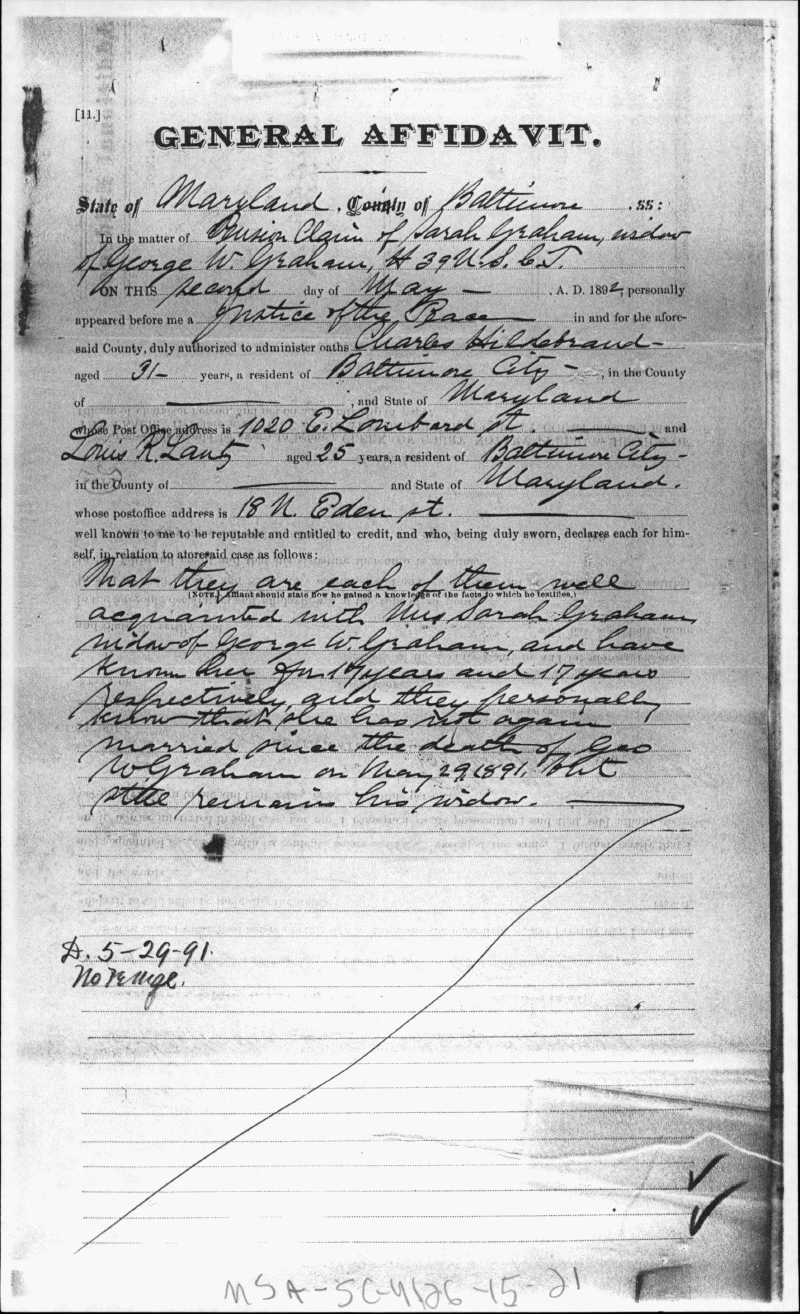 [11.]
GENERAL AFFIDAVIT.
State of Maryland, County of Baltimore. SS:
In the matter of Pension Claim of Sarah Graham, widow
of George W. Graham, H 39 U.S.C.T.
ON THIS second day of May —. A. D. 1892, personally
appeared before me a Justice of the Peace in and for the afore-
said County, duly authorized to administer oaths Charles Hildebrand-
aged 31- years, a resident of Baltimore City-, in the County
of —, and State of Maryland
whose Post Office address is 1020 E. Lombard st. — and
Louis R. Lantz aged 25 years, a resident of Baltimore City-
in the County of — and State of Maryland.
whose postoffice address is 18 N. Eden st. —
well known to me to be reputable and entitled to credit, and who, being duly sworn, declares each for him-
self, in relation to aforesaid case as follows:
That they are each of them well
(NOTE.] Affiant should state how he gained a knowledge of the facts to which he testifies.)
acquainted with Mrs Sarah Graham,
widow of George W. Graham, and have
known her for years and 17 years
respectively, and they personally
know that she has not again
married since the death of Geo
W Graham on May 29, 1891. but
still remains his widow. —
D. 5-29-91.
No
MSA-SC-4126-15-21